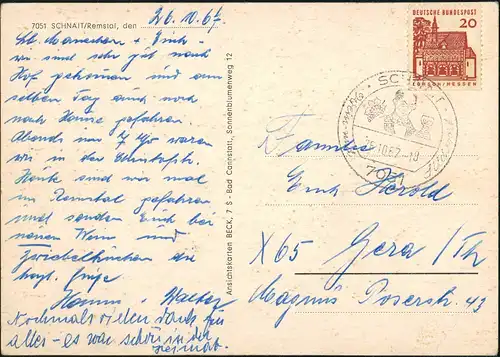 7051 SCHNAIT/Remstal, den 26.10.67
Lb. Mariechen + Erich -
wir sind sehr gut nach
Hof gekommen und am
selben Tag auch noch
nach Hause gefahren
Abends um 7 Uhr waren
wir in der
Heute sind wir mal
im Remstal gefahren
und senden Euch bei
neuen Wein und
Zwiebelkuchen die
hzgl. Grüße
Hanne u. Walter
Nochmals vielen Dank für
alles - es war schön in der
Heimat.
Ansichtskarten BECK, 7 S - Bad Cannstatt, Sonnenblumenweg 12
DEUTSCHE BUNDESPOST
20
LORSCH/HESSEN
SCHNAIT
.10.67.-10
7051
Familie
Erich Herold
X65 Gera/Th
Magnus Poserstr. 43